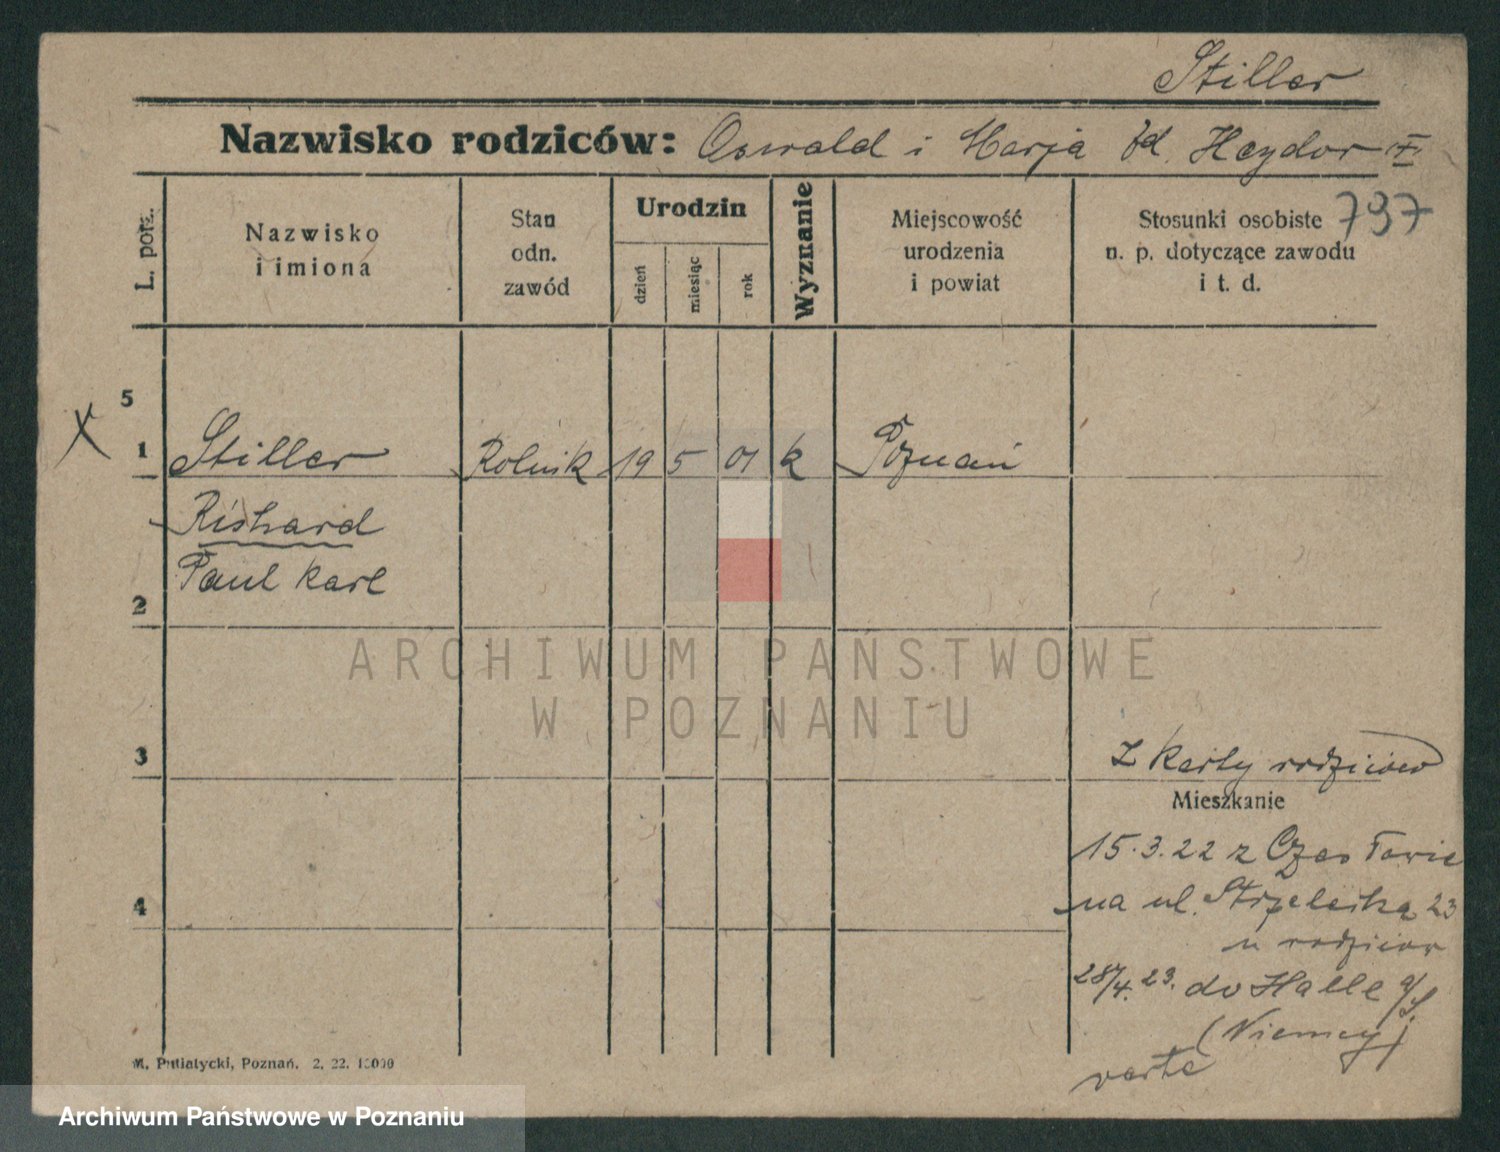 Stiller
Nazwisko rodziców: Oswald i Marja zd. Heydor
797
L. porz.
Nazwisko
i imiona
Stan
odn.
zawód
Urodzin
dzień
miesiąc
rok
Wyznanie
Miejscowość
urodzenia
i powiat
Stosunki osobiste
n. p. dotyczące zawodu
i t. d.
5
X 1 Stiller Rolnik 19 5 01 k Poznań
Richard
Paul Karl
2
ARCHIWUM PAŃSTWOWE
W POZNANIU
3
z karty rodziców
Mieszkanie
15.3.22 z
na ul. Strzelecką 23
u rodziców
4
28/4. 23. do Halle a/S.
(Niemcy)
verte
M. Putiatycki, Poznań. 2. 22. 10000
Archiwum Państwowe w Poznaniu